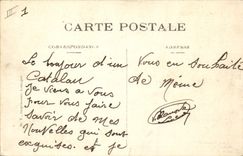 III 1
CARTE POSTALE
CORRESPONDANCE
ADRESSE
Le bonjour d'un
Catalan
je viens a vous
pour vous faire
savoir de mes
Nouvelles qui sont
exquises. et je
Vous en souhaite
de meme